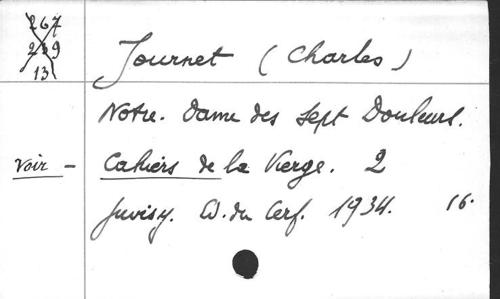 267
239
13
Journet (Charles)
Notre-Dame des Sept Douleurs.
voir - Cahiers de la Vierge. 2
Juvisy. Ed. du Cerf. 1934. 16.